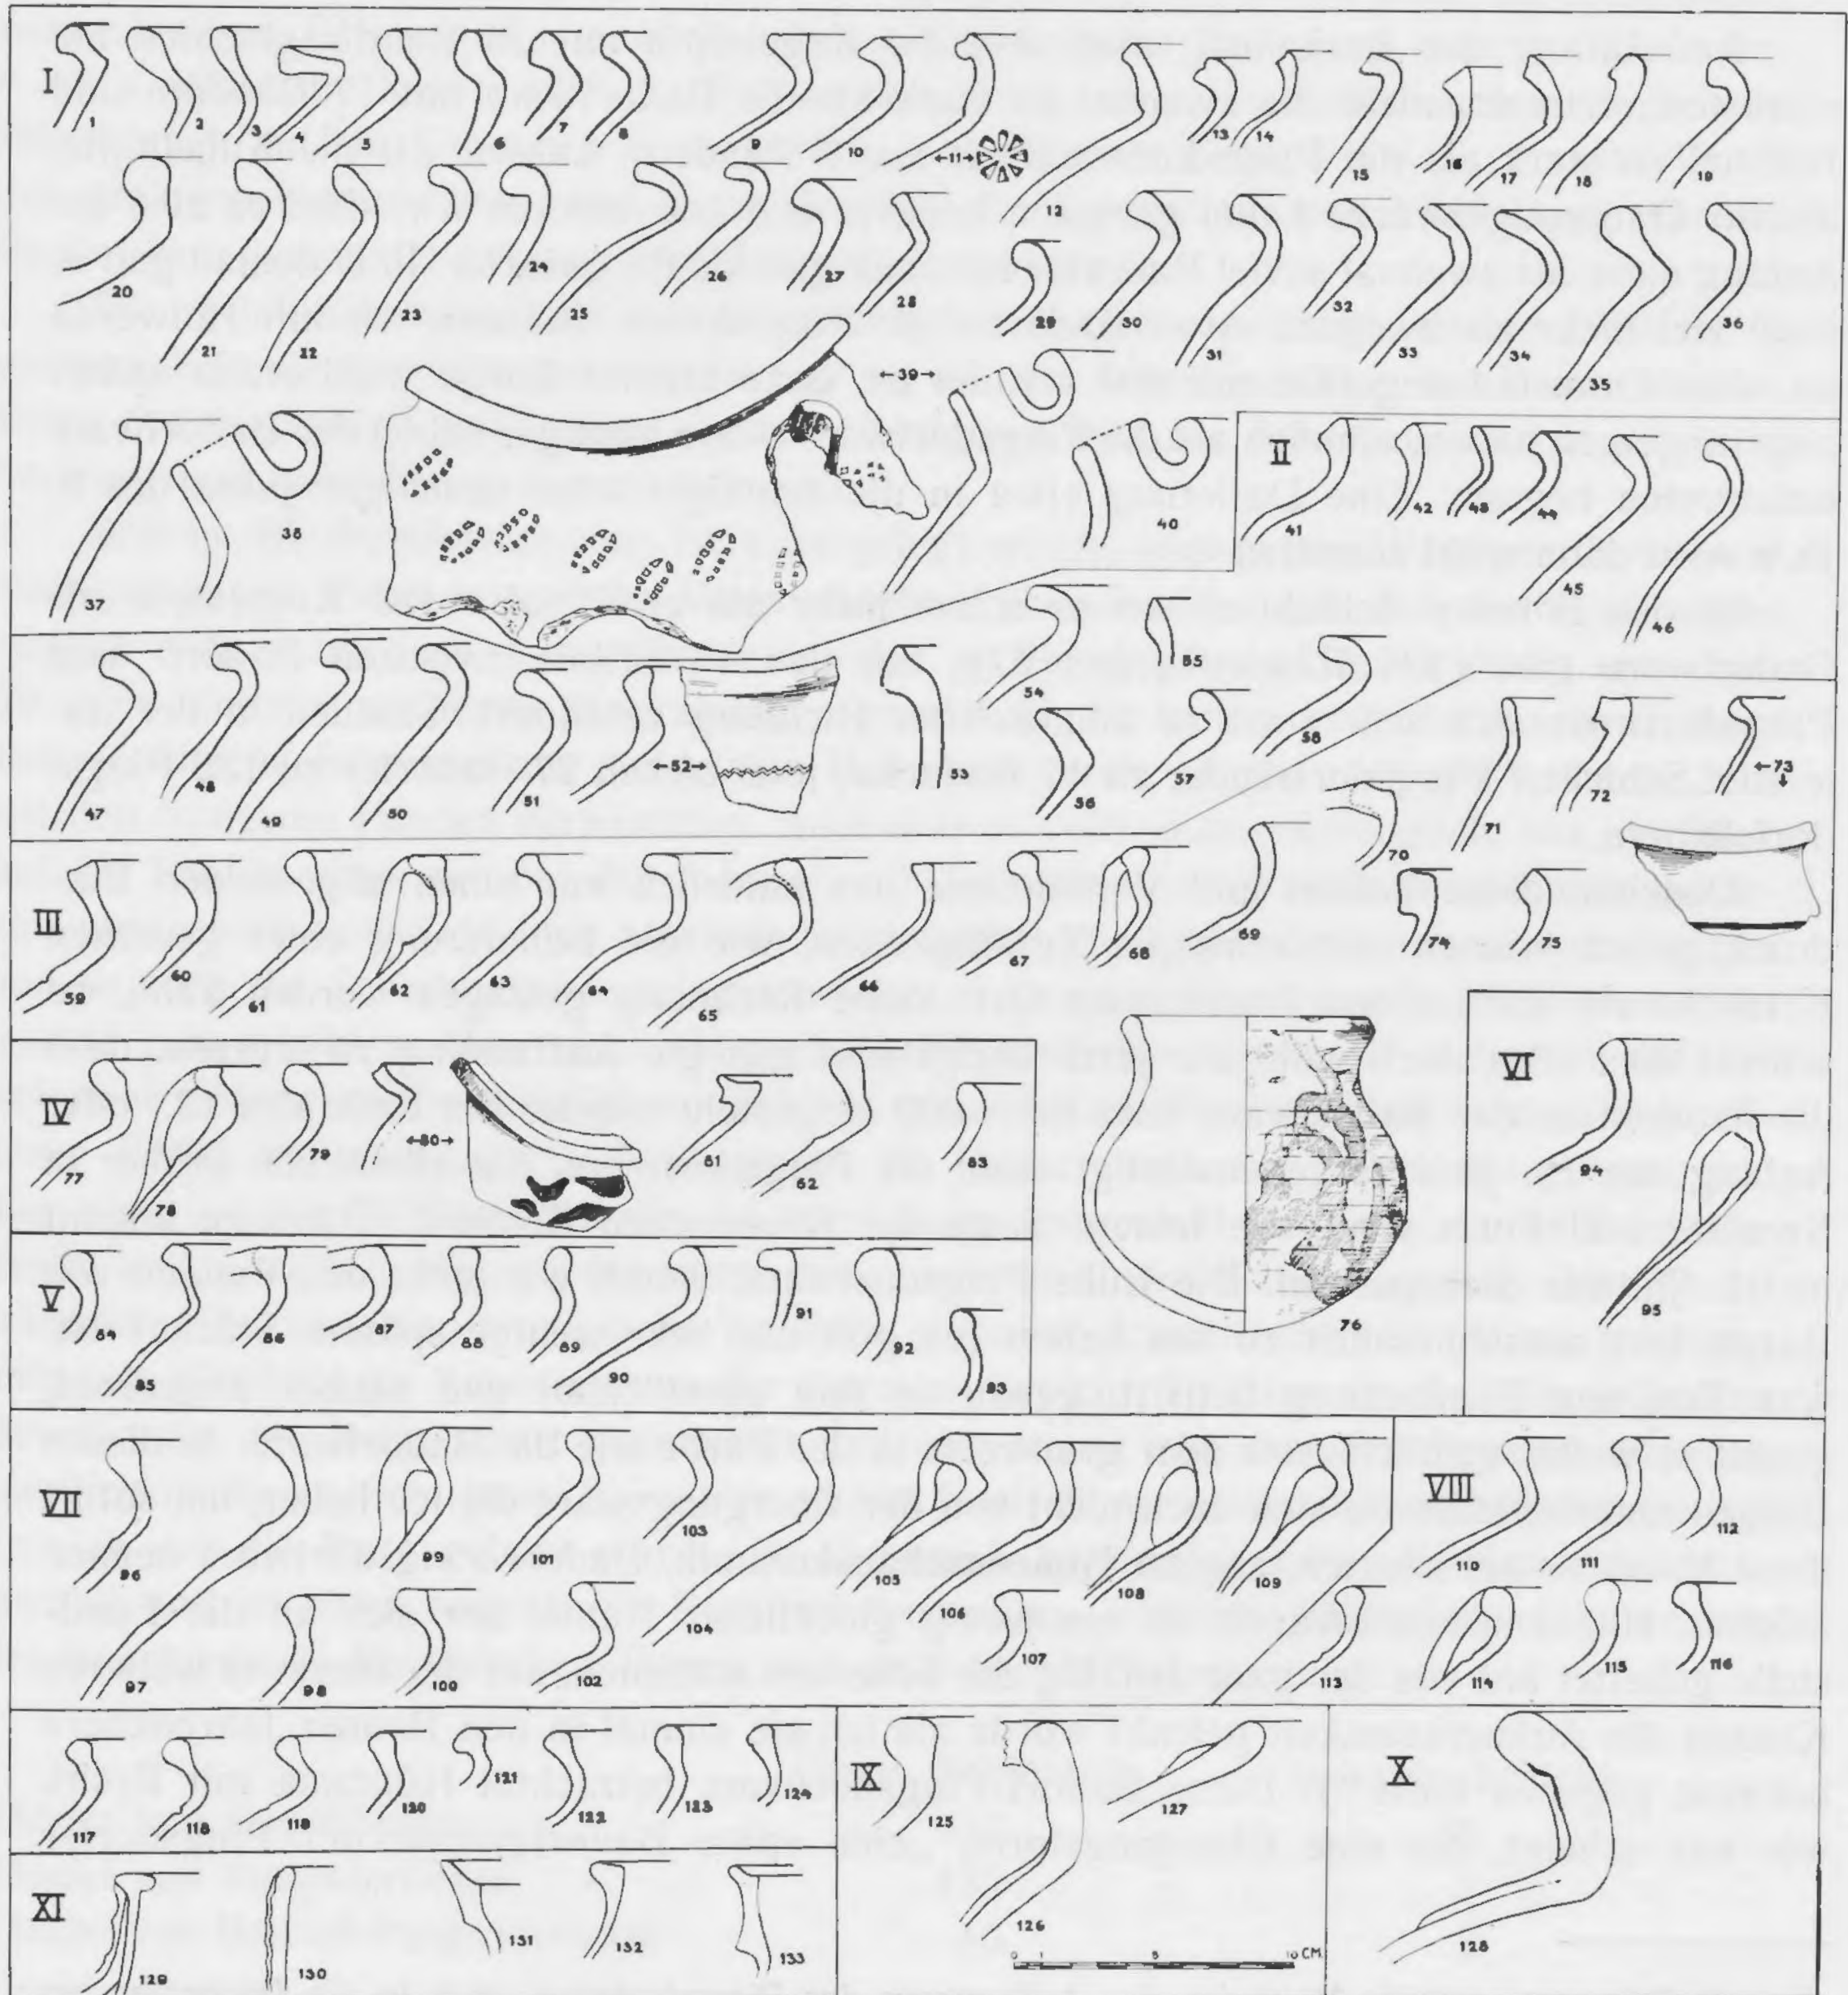 I
1 2 3 4 5 6 7 8 9 10 ←11→ 12 13 14 15 16 17 18 19
20 21 22 23 24 25 26 27 28 29 30 31 32 33 34 35 36
37 38 ←39→ 40
II
41 42 43 44 45 46
47 48 49 50 51 ←52→ 53 54 55 56 57 58
III
59 60 61 62 63 64 65 66 67 68 69 70 71 72 ←73 ↓ 74 75
76
IV
77 78 79 ←80→ 81 82 83
V
84 85 86 87 88 89 90 91 92 93
VI
94 95
VII
96 97 98 99 100 101 102 103 104 105 106 107 108 109
VIII
110 111 112 113 114 115 116
117 118 119 120 121 122 123 124
IX
125 126 127
0 1 5 10 CM.
X
128
XI
129 130 131 132 133